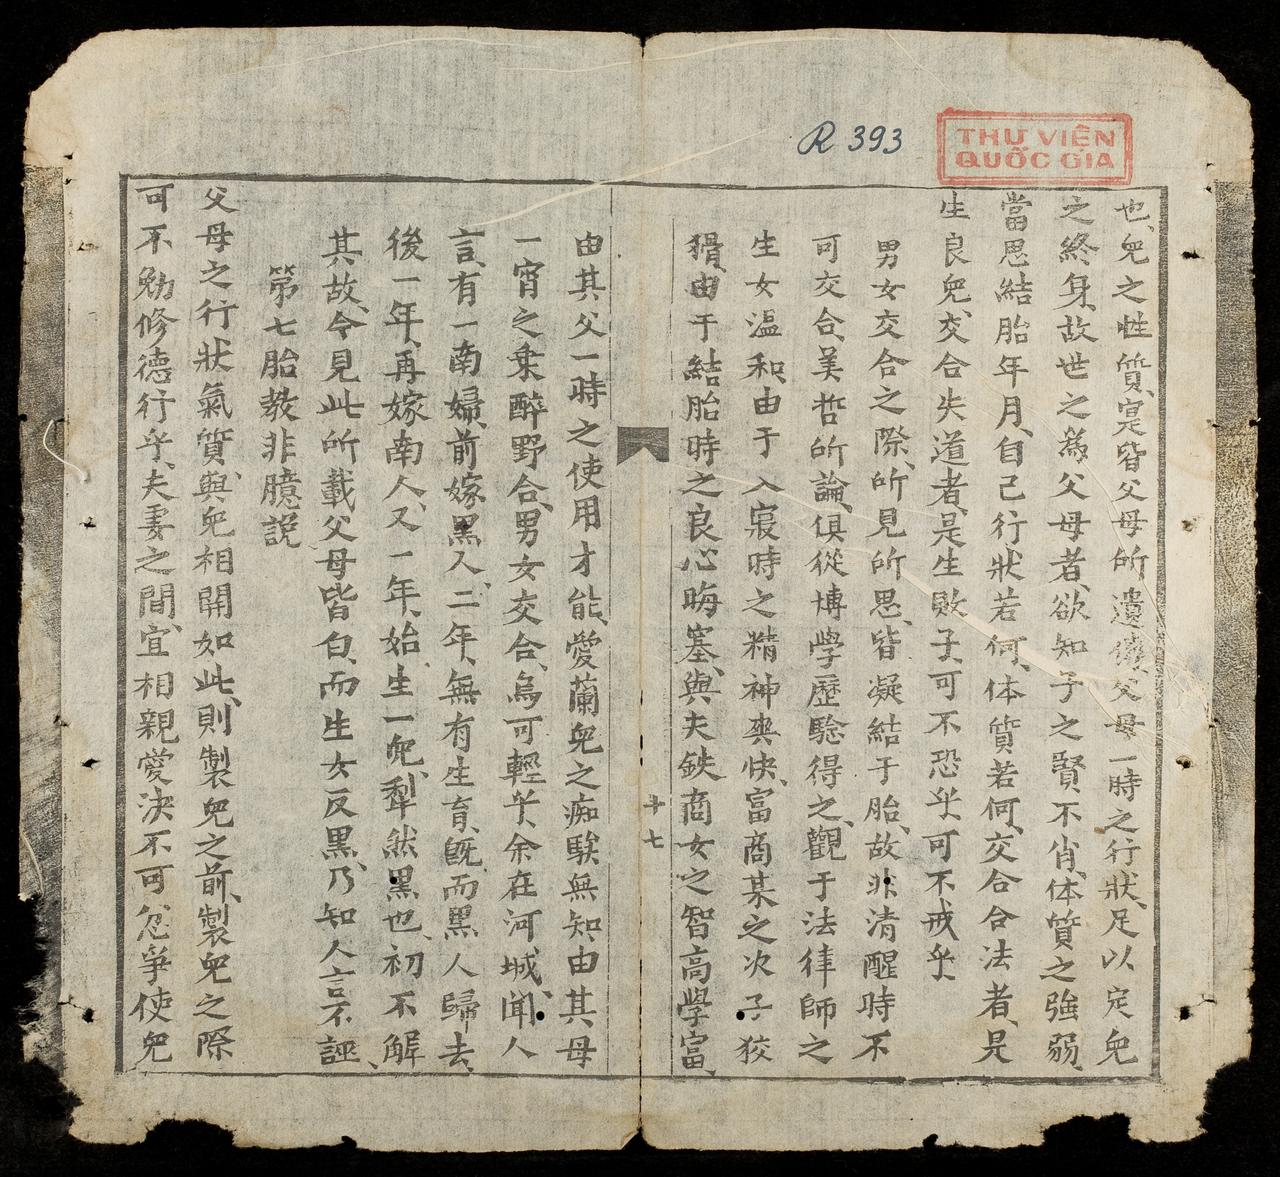 R 393
THƯ VIỆN
QUỐC GIA
也、兒之性質、寔皆父母所遺傳、父母一時之行狀、足以定兒
之終身、故世之為父母者、欲知子之賢不肖、体質之強弱、
當思結胎年月、自己行狀若何、体質若何、交合合法者、是
生良兒、交合失道者、是生敗子、可不恐乎、可不戒乎
男女交合之際、所見所思、皆凝結于胎、故非清醒時不
可交合、美哲所論、俱從博學歷驗得之、觀于法律師之
生女温和、由于入寢時之精神爽快、富商某之次子狡
猾、由于結胎時之良心晦塞、與夫鉄商女之智高學富、
十七
由其父一時之使用才能、愛蘭兒之痴騃無知、由其母
一宵之乗醉野合、男女交合、烏可輕乎、余在河城、聞人
言、有一南婦、前嫁黑人、二年、無有生育、既而黑人歸去、
後一年、再嫁南人、又一年、始生一兒、犁然黑也、初不解
其故、今見此所載父母皆白、而生女反黑、乃知人言不誣、
第七胎教非臆説
父母之行狀氣質、與兒相関如此、則製兒之前、製兒之際
可不勉修德行乎、夫妻之間、宜相親愛、决不可忿爭、使兒